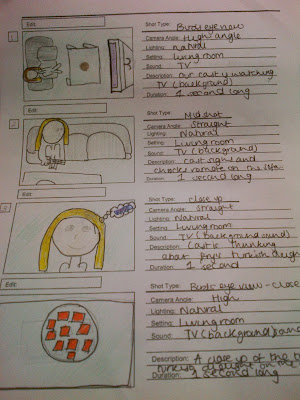 1
Edit:
Shot Type: Birds eye view
Camera Angle: High angle
Lighting: natural
Setting: living room
Sound: TV
Description: our cast is watching
TV (background)
Duration: 1 second long
2
Edit:
Shot Type: Mid shot
Camera Angle: Straight
Lighting: Natural
Setting: Living room
Sound: TV (background)
Description: cast sighs and
chucks remote on the
Duration: 1 second long
3
Edit:
Shot Type: close up
Camera Angle: straight
Lighting: Natural
Setting: Living room
Sound: TV (background sound)
Description: Cast is thinking
about Frys Turkish
Duration: 1 second
Edit:
Shot Type: Birds eye view - close
Camera Angle: High
Lighting: Natural
Setting: Living room
Sound: TV (background)
Description: A close up of the
delight on the
Duration: 1 second long